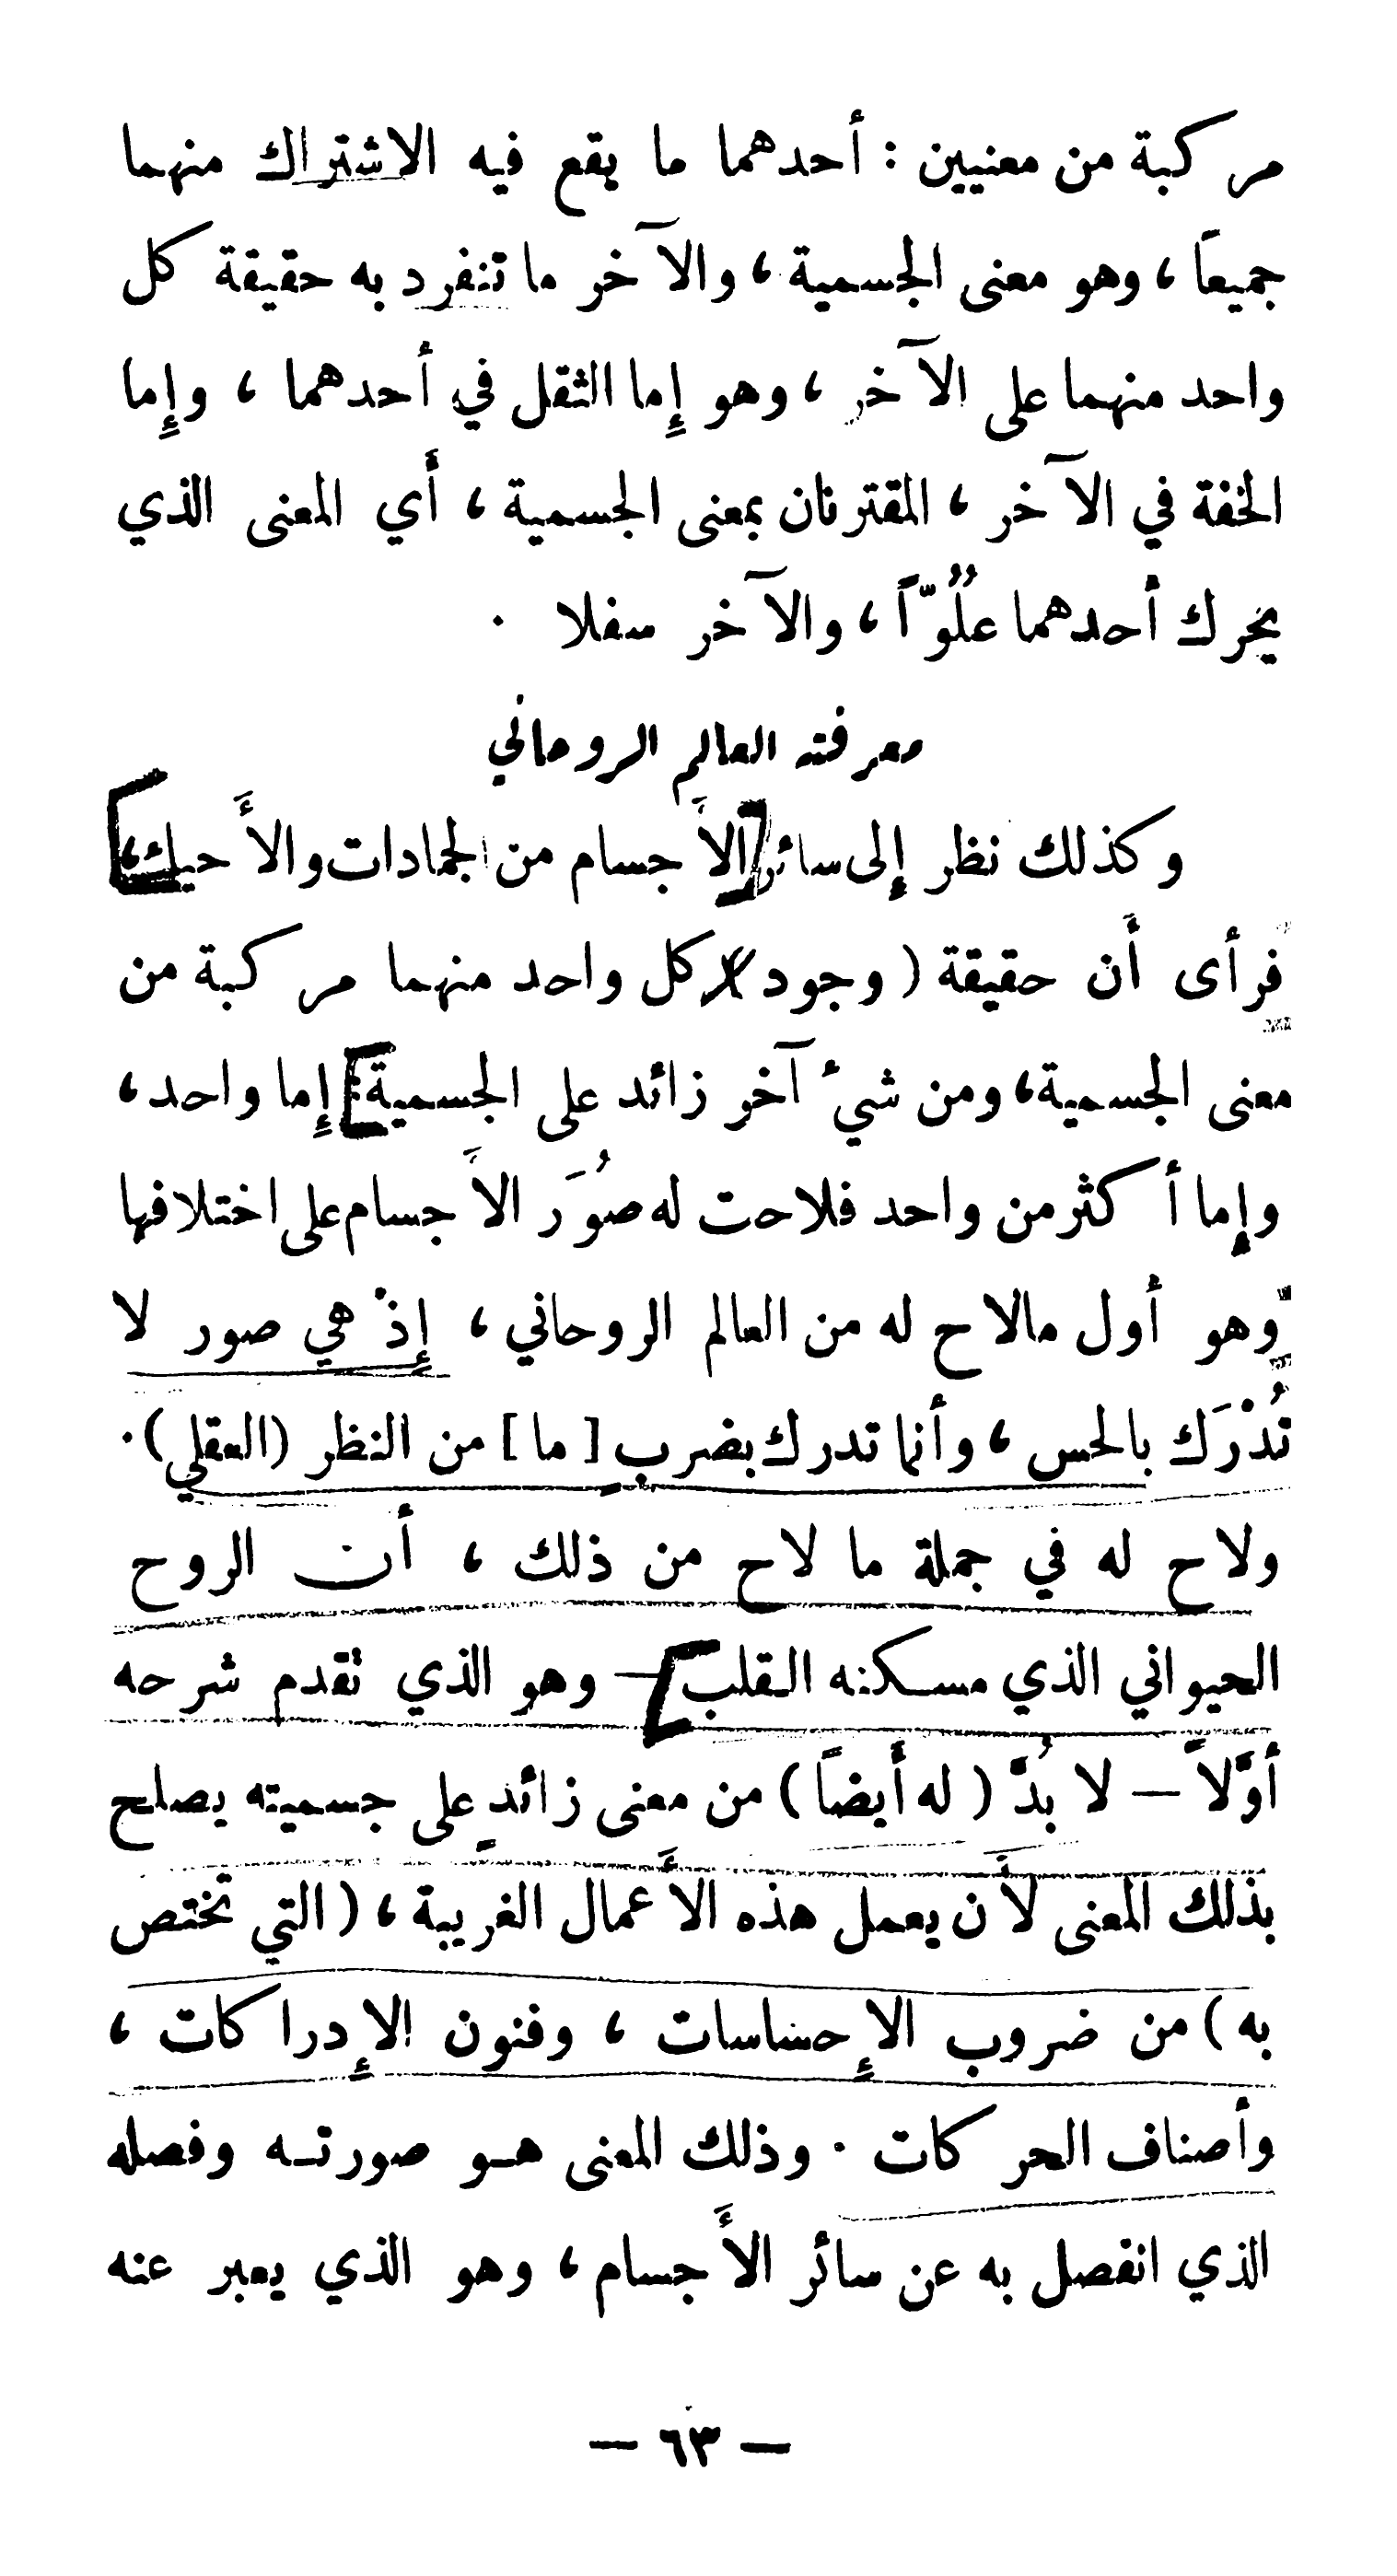 مركبة من معنيين : أحدهما ما يقع فيه الاشتراك منهما
جميعاً ، وهو معنى الجسمية ، والآخر ما تنفرد به حقيقة كل
واحد منهما على الآخر ، وهو إما الثقل في أحدهما ، وإما
الخفة في الآخر ، المقترنان بمعنى الجسمية ، أي المعنى الذي
يحرك أحدهما علُوّاً ، والآخر سفلا .
معرفته العالم الروحاني
وكذلك نظر إلى سائر الأجسام من الجمادات والأحياء،
فرأى أن حقيقة ( وجود ) كل واحد منهما مركبة من
معنى الجسمية، ومن شيء آخر زائد على الجسمية: إما واحد،
وإما أكثر من واحد فلاحت له صُوَر الأجسام على اختلافها
وهو أول مالاح له من العالم الروحاني ، إذْ هي صور لا
تُدْرَك بالحس ، وأنما تدرك بضربٍ [ ما ] من النظر (العقلي).
ولاح له في جملة ما لاح من ذلك ، أن الروح
الحيواني الذي مسكنه القلب — وهو الذي تقدم شرحه
أوّلاً — لا بُدَّ ( له أيضاً ) من معنى زائدٍ على جسميته يصلح
بذلك المعنى لأن يعمل هذه الأعمال الغريبة ، ( التي تختص
به ) من ضروب الإحساسات ، وفنون الإدراكات ،
وأصناف الحركات . وذلك المعنى هو صورته وفصله
الذي انفصل به عن سائر الأجسام ، وهو الذي يعبر عنه
— ٦٣ —